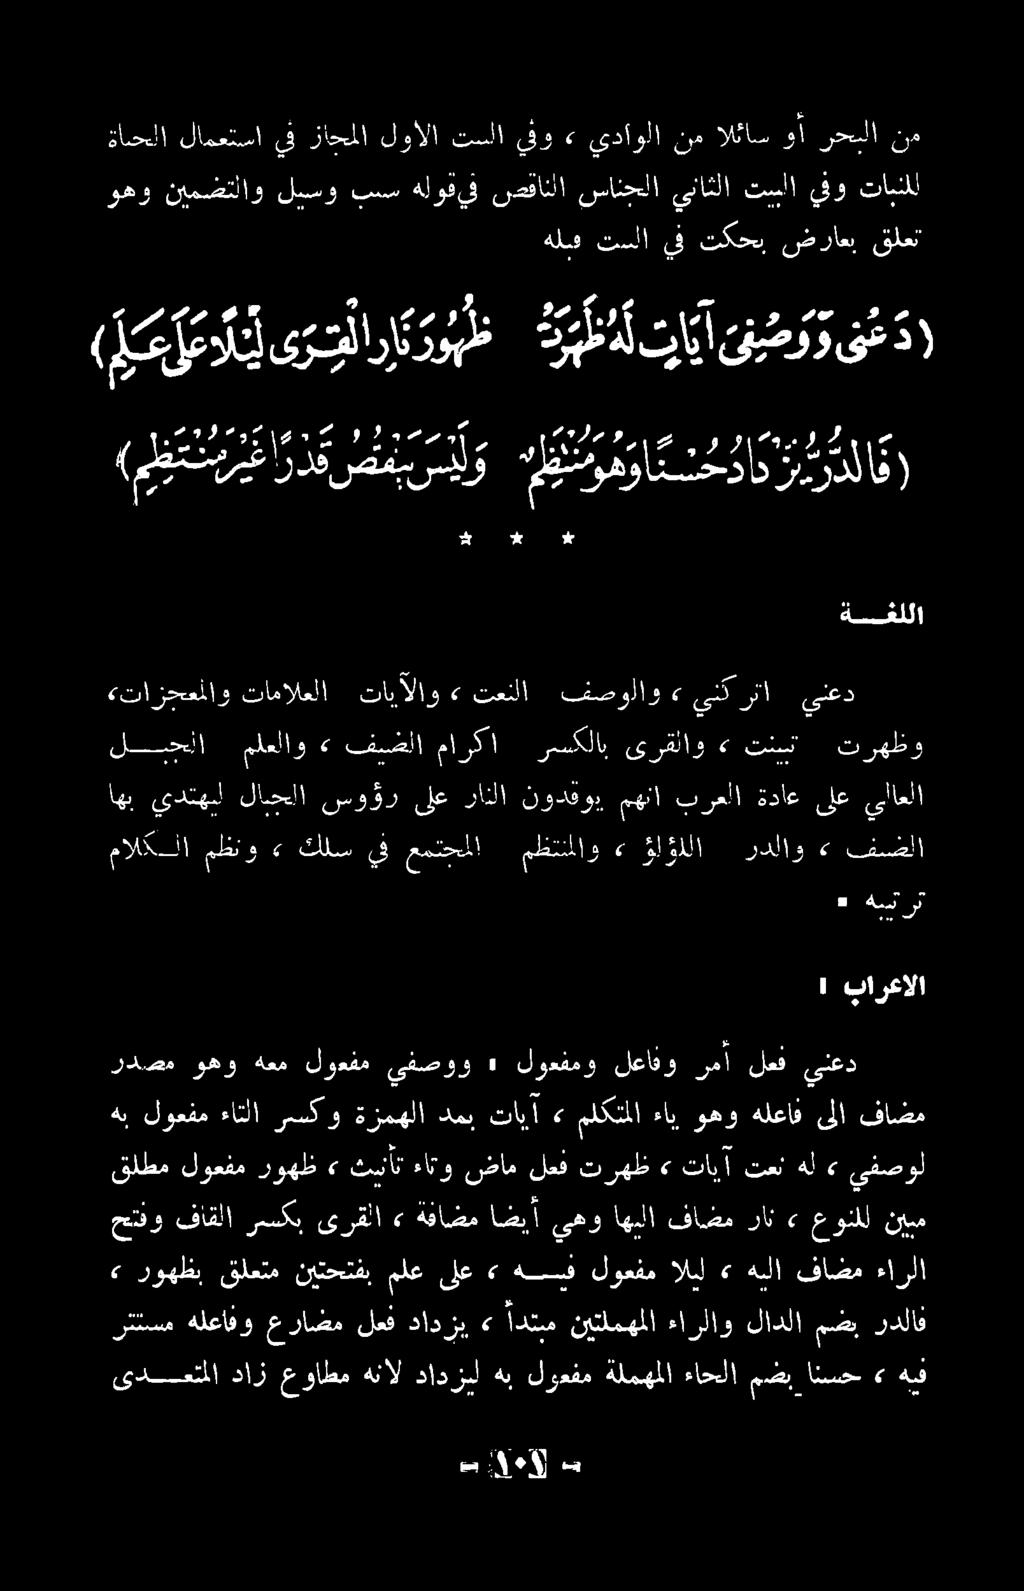 من البحر أو سائلا من الوادي ، وفي البيت الاول المجاز في استعمال الحياة
للنبات وفي البيت الثاني الجناس الناقص في قوله سيب وسيل والتضمين وهو
تعلق بعارض بحكت في البيت قبله
(دَعْنِي وَوَصْفِيَ آيَاتٍ لَهُ ظَهَرَتْ ظُهُورَ نَارِ الْقِرَى لَيْلًا عَلَى عَلَمِ)
(فَالدُّرُّ يَزْدَادُ حُسْنًا وَهُوَ مُنْتَظِمٌ وَلَيْسَ يَنْقُصُ قَدْرًا غَيْرَ مُنْتَظِمِ)
* * *
اللغـــة
دعني اتركني ، والوصف النعت ، والآيات العلامات والمعجزات،
وظهرت تبينت ، والقرى بالكسر اكرام الضيف ، والعلم الجبـــل
العالي على عادة العرب انهم يوقدون النار على رؤوس الجبال ليهتدي بها
الضيف ، والدر اللؤلؤ ، والمنتظم المجتمع في سلك ، ونظم الـكلام
ترتيبه .
الاعراب :
دعني فعل أمر وفاعل ومفعول . ووصفي مفعول معه وهو مصدر
مضاف الى فاعله وهو ياء المتكلم ، آيات بمد الهمزة وكسر التاء مفعول به
لوصفي ، له نعت آيات ، ظهرت فعل ماض وتاء تأنيث ، ظهور مفعول مطلق
مبين للنوع ، نار مضاف اليها وهي أيضا مضافة ، القرى بكسر القاف وفتح
الراء مضاف اليه ، ليلا مفعول فيـــه ، على علم بفتحتين متعلق بظهور ،
فالدر بضم الدال والراء المهملتين مبتدأ ، يزداد فعل مضارع وفاعله مستتر
فيه ، حسنا بضم الحاء المهملة مفعول به ليزداد لانه مطاوع زاد المتعـــدى
- ١٠١ -